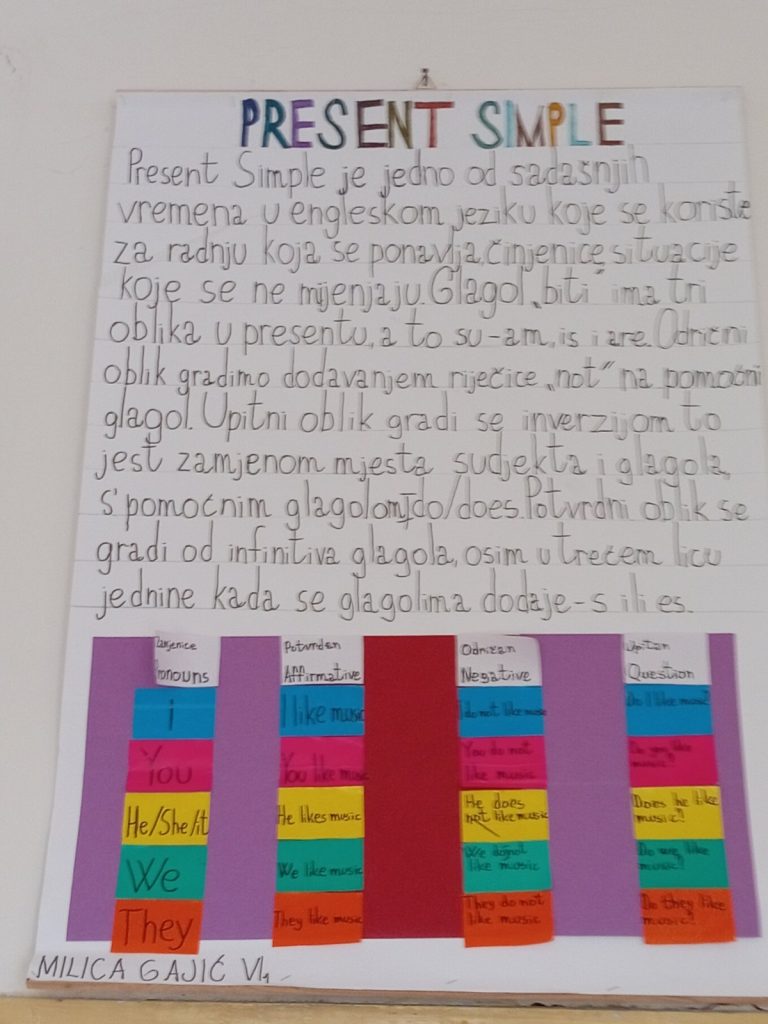 PRESENT SIMPLE
Present Simple je jedno od sadašnjih
vremena u engleskom jeziku koje se koriste
za radnju koja se ponavlja, činjenice, situacije
koje se ne mijenjaju. Glagol „biti" ima tri
oblika u presentu, a to su-am, is i are. Odrični
oblik gradimo dodavanjem riječice „not" na pomoćni
glagol. Upitni oblik gradi se inverzijom to
jest zamjenom mjesta sudjekta i glagola,
s' pomoćnim glagolom do/does. Potvrdni oblik se
gradi od infinitiva glagola, osim u trećem licu
jednine kada se glagolima dodaje-s ili es.
Zamjenice Potvrdan Odričan Upitan
Pronouns Affirmative Negative Question
i I like music I do not like music Do I like music?
You You like music You do not like music Do you like music?
He/She/it He likes music He does not like music Does he like music?
We We like music We do not like music Do we like music?
They They like music They do not like music Do they like music?
MILICA GAJIĆ VI1